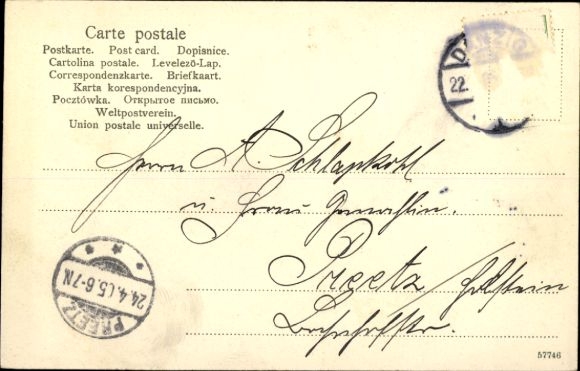 Carte postale
Postkarte. Post card. Dopisnice.
Cartolina postale. Levelező-Lap.
Correspondenzkarte. Briefkaart.
Karta korespondencyjna.
Pocztówka. Открытое письмо.
Weltpostverein.
Union postale universelle.
22.
Herrn A. Schlapkohl
u. Frau Gemahlin.
Preetz / Holstein
Bahnhofstr.
PREETZ
24.4.05.6-7N.
57746